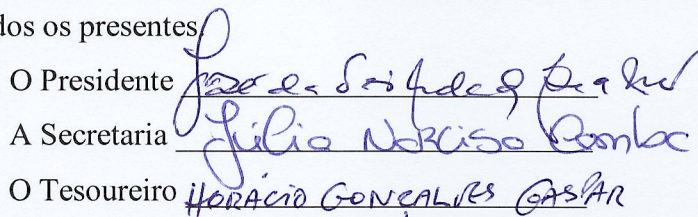 dos os presentes.
O Presidente
A Secretaria Júlia Narciso
O Tesoureiro HORÁCIO GONÇALVES GASPAR